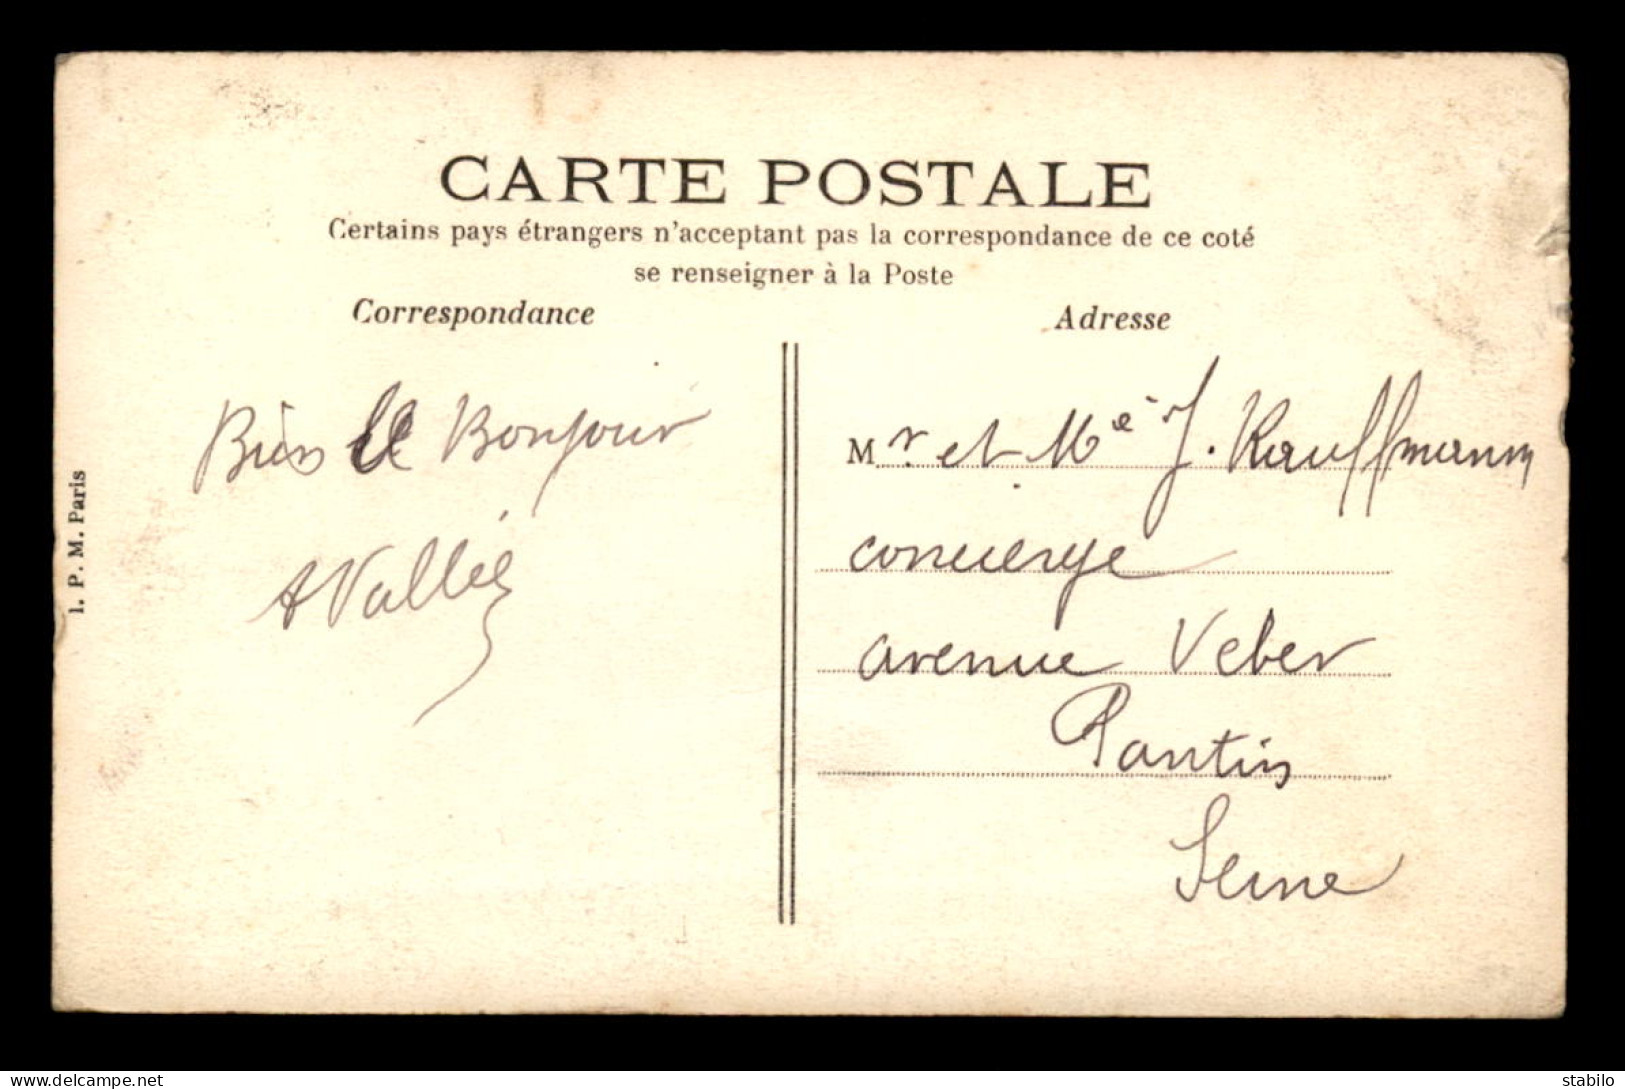 CARTE POSTALE
Certains pays étrangers n'acceptant pas la correspondance de ce coté
se renseigner à la Poste
Correspondance
Adresse
Bien le Bonjour
A Vallée
Mr. et Me J. Kauffmann
concierge
avenue Veber
Pantin
Seine
I. P. M. Paris
www.delcampe.net
stabilo